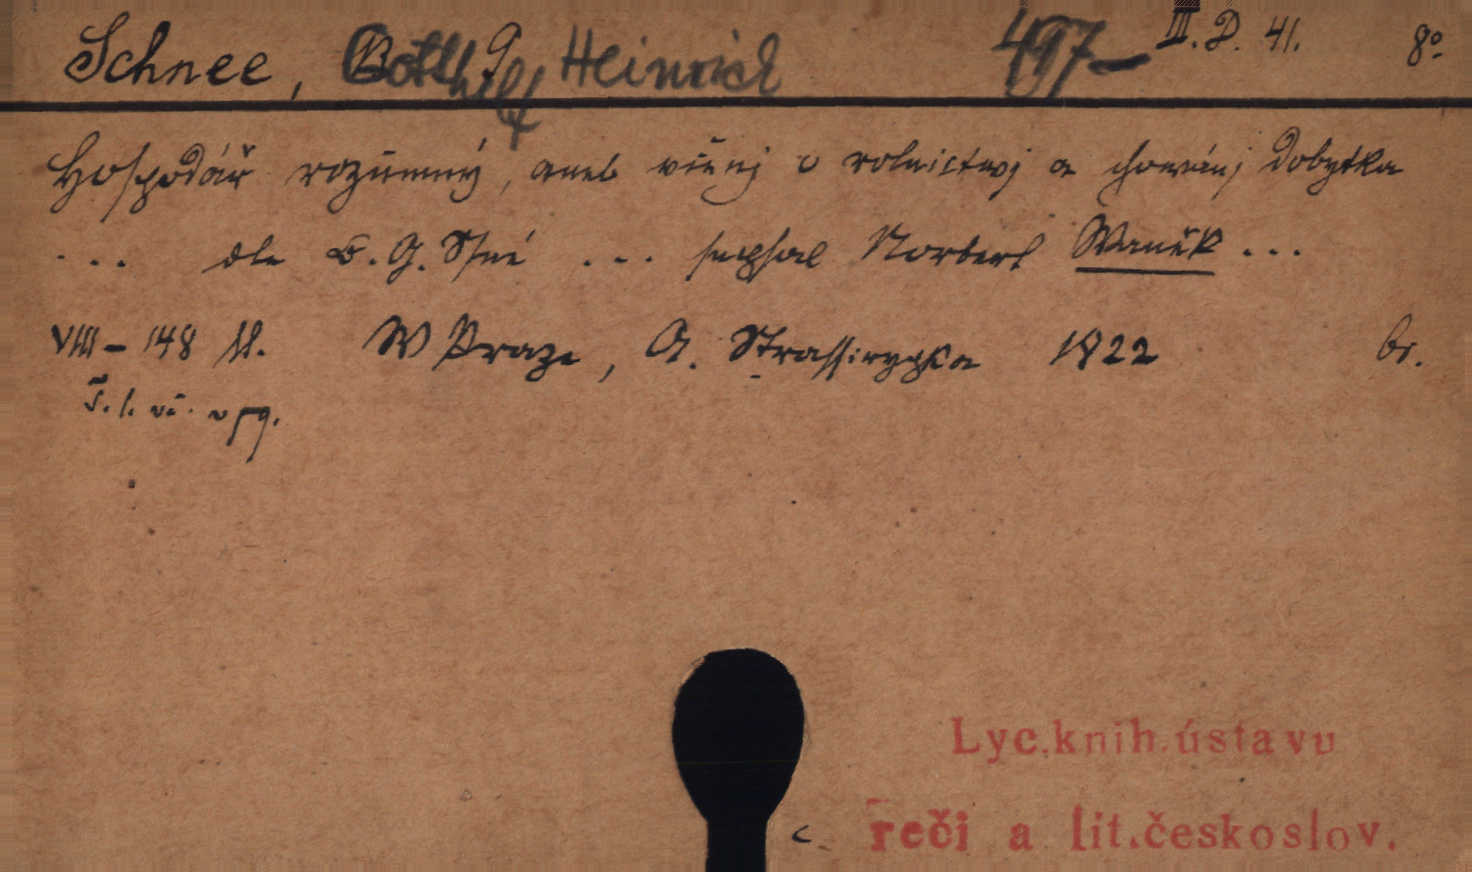 Schnee, Gotthilf Heinrich 497- III. D. 41. 8°
Hospodář rozumný, aneb včenj o rolnictwj a chowánj dobytka
... dle G. Šné ... sepsal Norbert Waněk ...
VIII-148 W Praze, A. Strassirypka 1822 br.
Lyc. knih. ústavu
řeči a lit. českoslov.